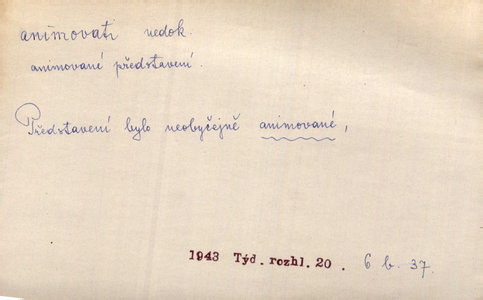 animovati nedok.
animované představení.
Představení bylo neobyčejně animované,
1943 Týd. rozhl. 20. 6 b. 37.